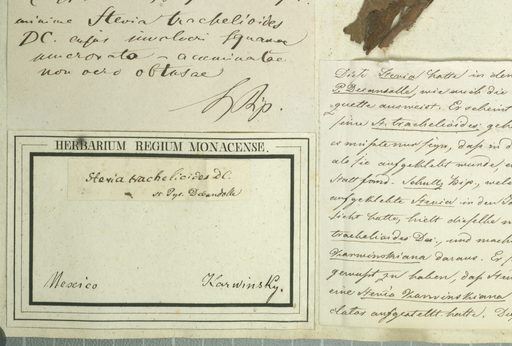 minime Stevia trachelioides
DC. cujus involucri squamae
mucronato-acuminatae
non vero obtusae
Sz Bip.
HERBARIUM REGIUM MONACENSE.
Stevia trachelioides DC.
Mexico
Karwinsky.
Stevia hatte in den
wie auch die
quette ausweist. Er scheint
seine St. trachelioides
er müßte nur seyn, daß in d
als sie aufgeklebt wurde, e
Statt fand. Schultz Bip, welc
aufgeklebte Stevia in den
sicht hatte, hielt dieselbe
trachelioides Dec., und mach
Karwinskiana daraus. Er
gewußt zu haben, daß Steu
eine Stevia Karwinskiana
aufgestellt hatte.